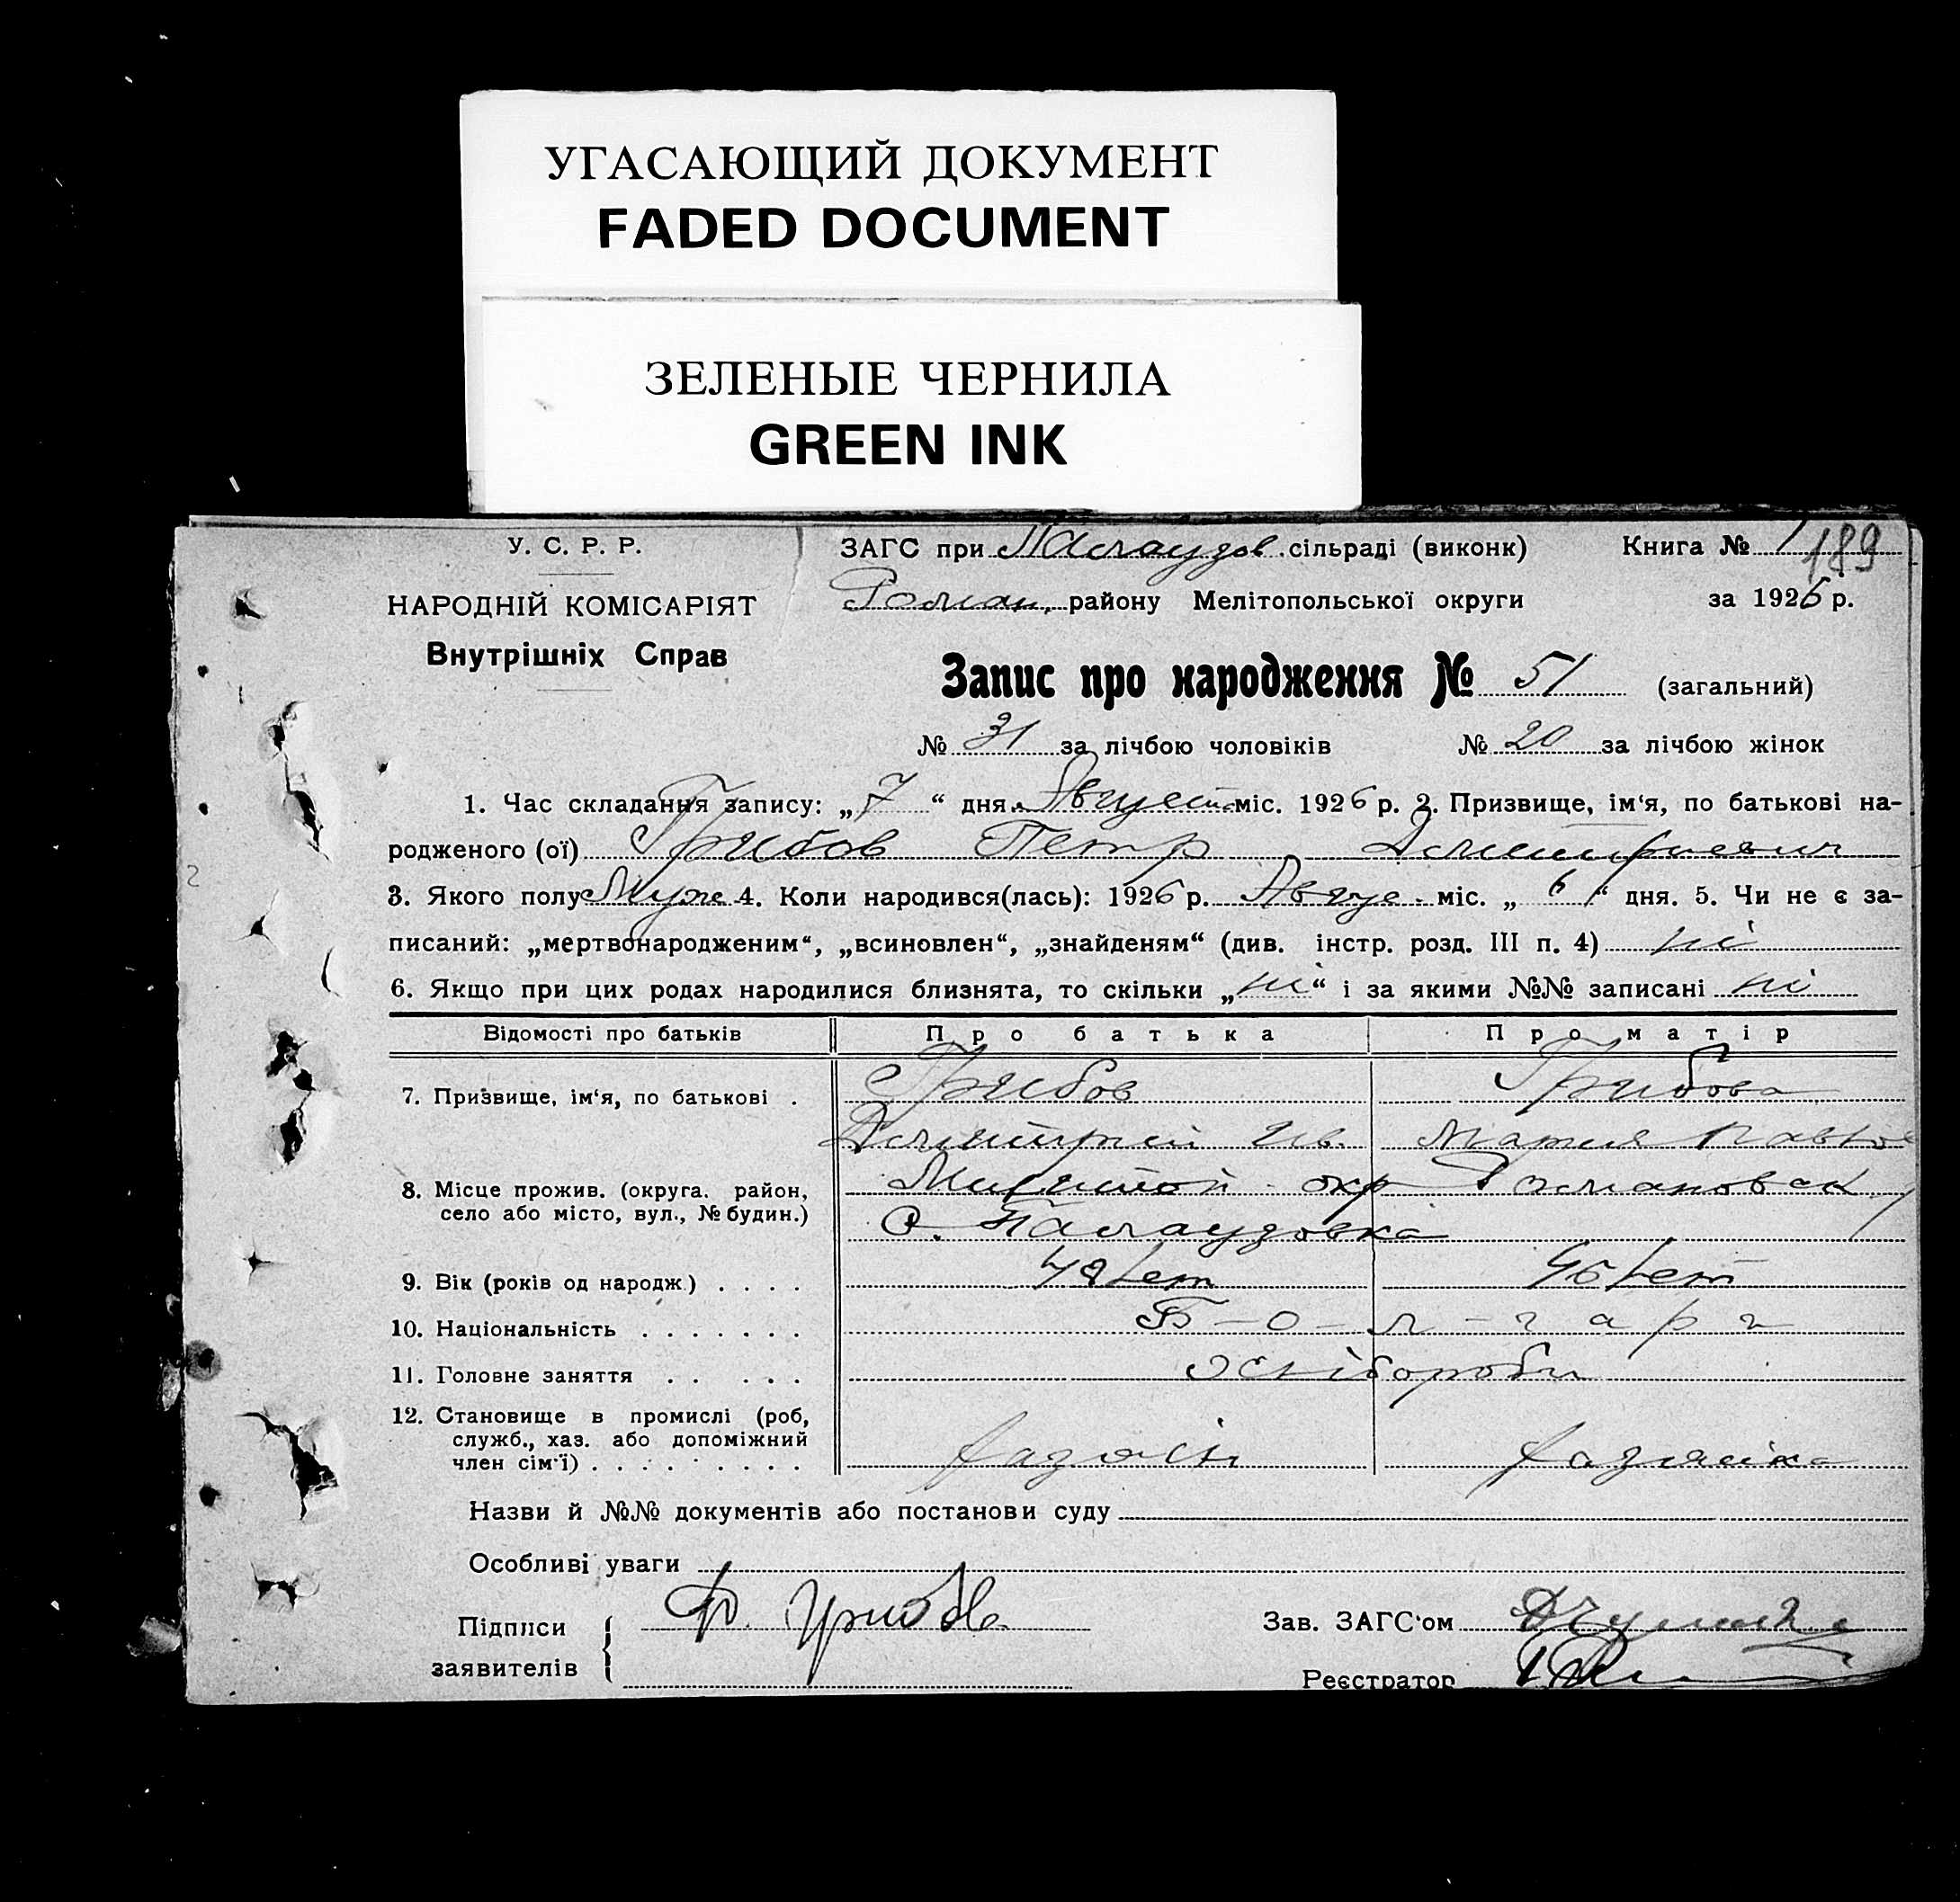 УГАСАЮЩИЙ ДОКУМЕНТ
FADED DOCUMENT
ЗЕЛЕНЫЕ ЧЕРНИЛА
GREEN INK
У. С. Р. Р.
НАРОДНІЙ КОМІСАРІЯТ
Внутрішніх Справ
ЗАГС при Палаузов. сільраді (виконк) Книга № 1
189
Роман. району Мелітопольської округи за 1926 р.
Запис про народження № 51 (загальний)
№ 31 за лічбою чоловіків № 20 за лічбою жінок
1. Час складання запису: „7“ дня Август міс. 1926 р. 2. Призвище, ім‘я, по батькові на-
родженого (ої) Грибов Петр Дмитриевич
3. Якого полу Муж 4. Коли народився(лась): 1926 р. Авгус. міс. „6“ дня. 5. Чи не є за-
писаний: „мертвонародженим“, „всиновлен“, „знайденям“ (див. інстр. розд. III п. 4) ні
6. Якщо при цих родах народилися близнята, то скільки „ні“ і за якими №№ записані ні
Відомості про батьків Про батька Про матір
7. Призвище, ім‘я, по батькові . Грибов Грибова
Дмитрий Ив. Мария Павло
8. Місце прожив. (округа. район, село або місто, вул., № будин.) Мелитоп. окр Романовск
с. Палаузовка
9. Вік (років од народж.) . . . . 48 лет 46 лет
10. Національність . . . . . . . Б-о-л-гары
11. Головне заняття . . . . . Хлібороби
12. Становище в промислі (роб, служб., хаз. або допоміжний член сім‘ї) . . . . . . . . . хазяін хазяйка
Назви й №№ документів або постанови суду
Особливі уваги
Підписи заявителів Д. Грибов
Зав. ЗАГС‘ом
Реєстратор